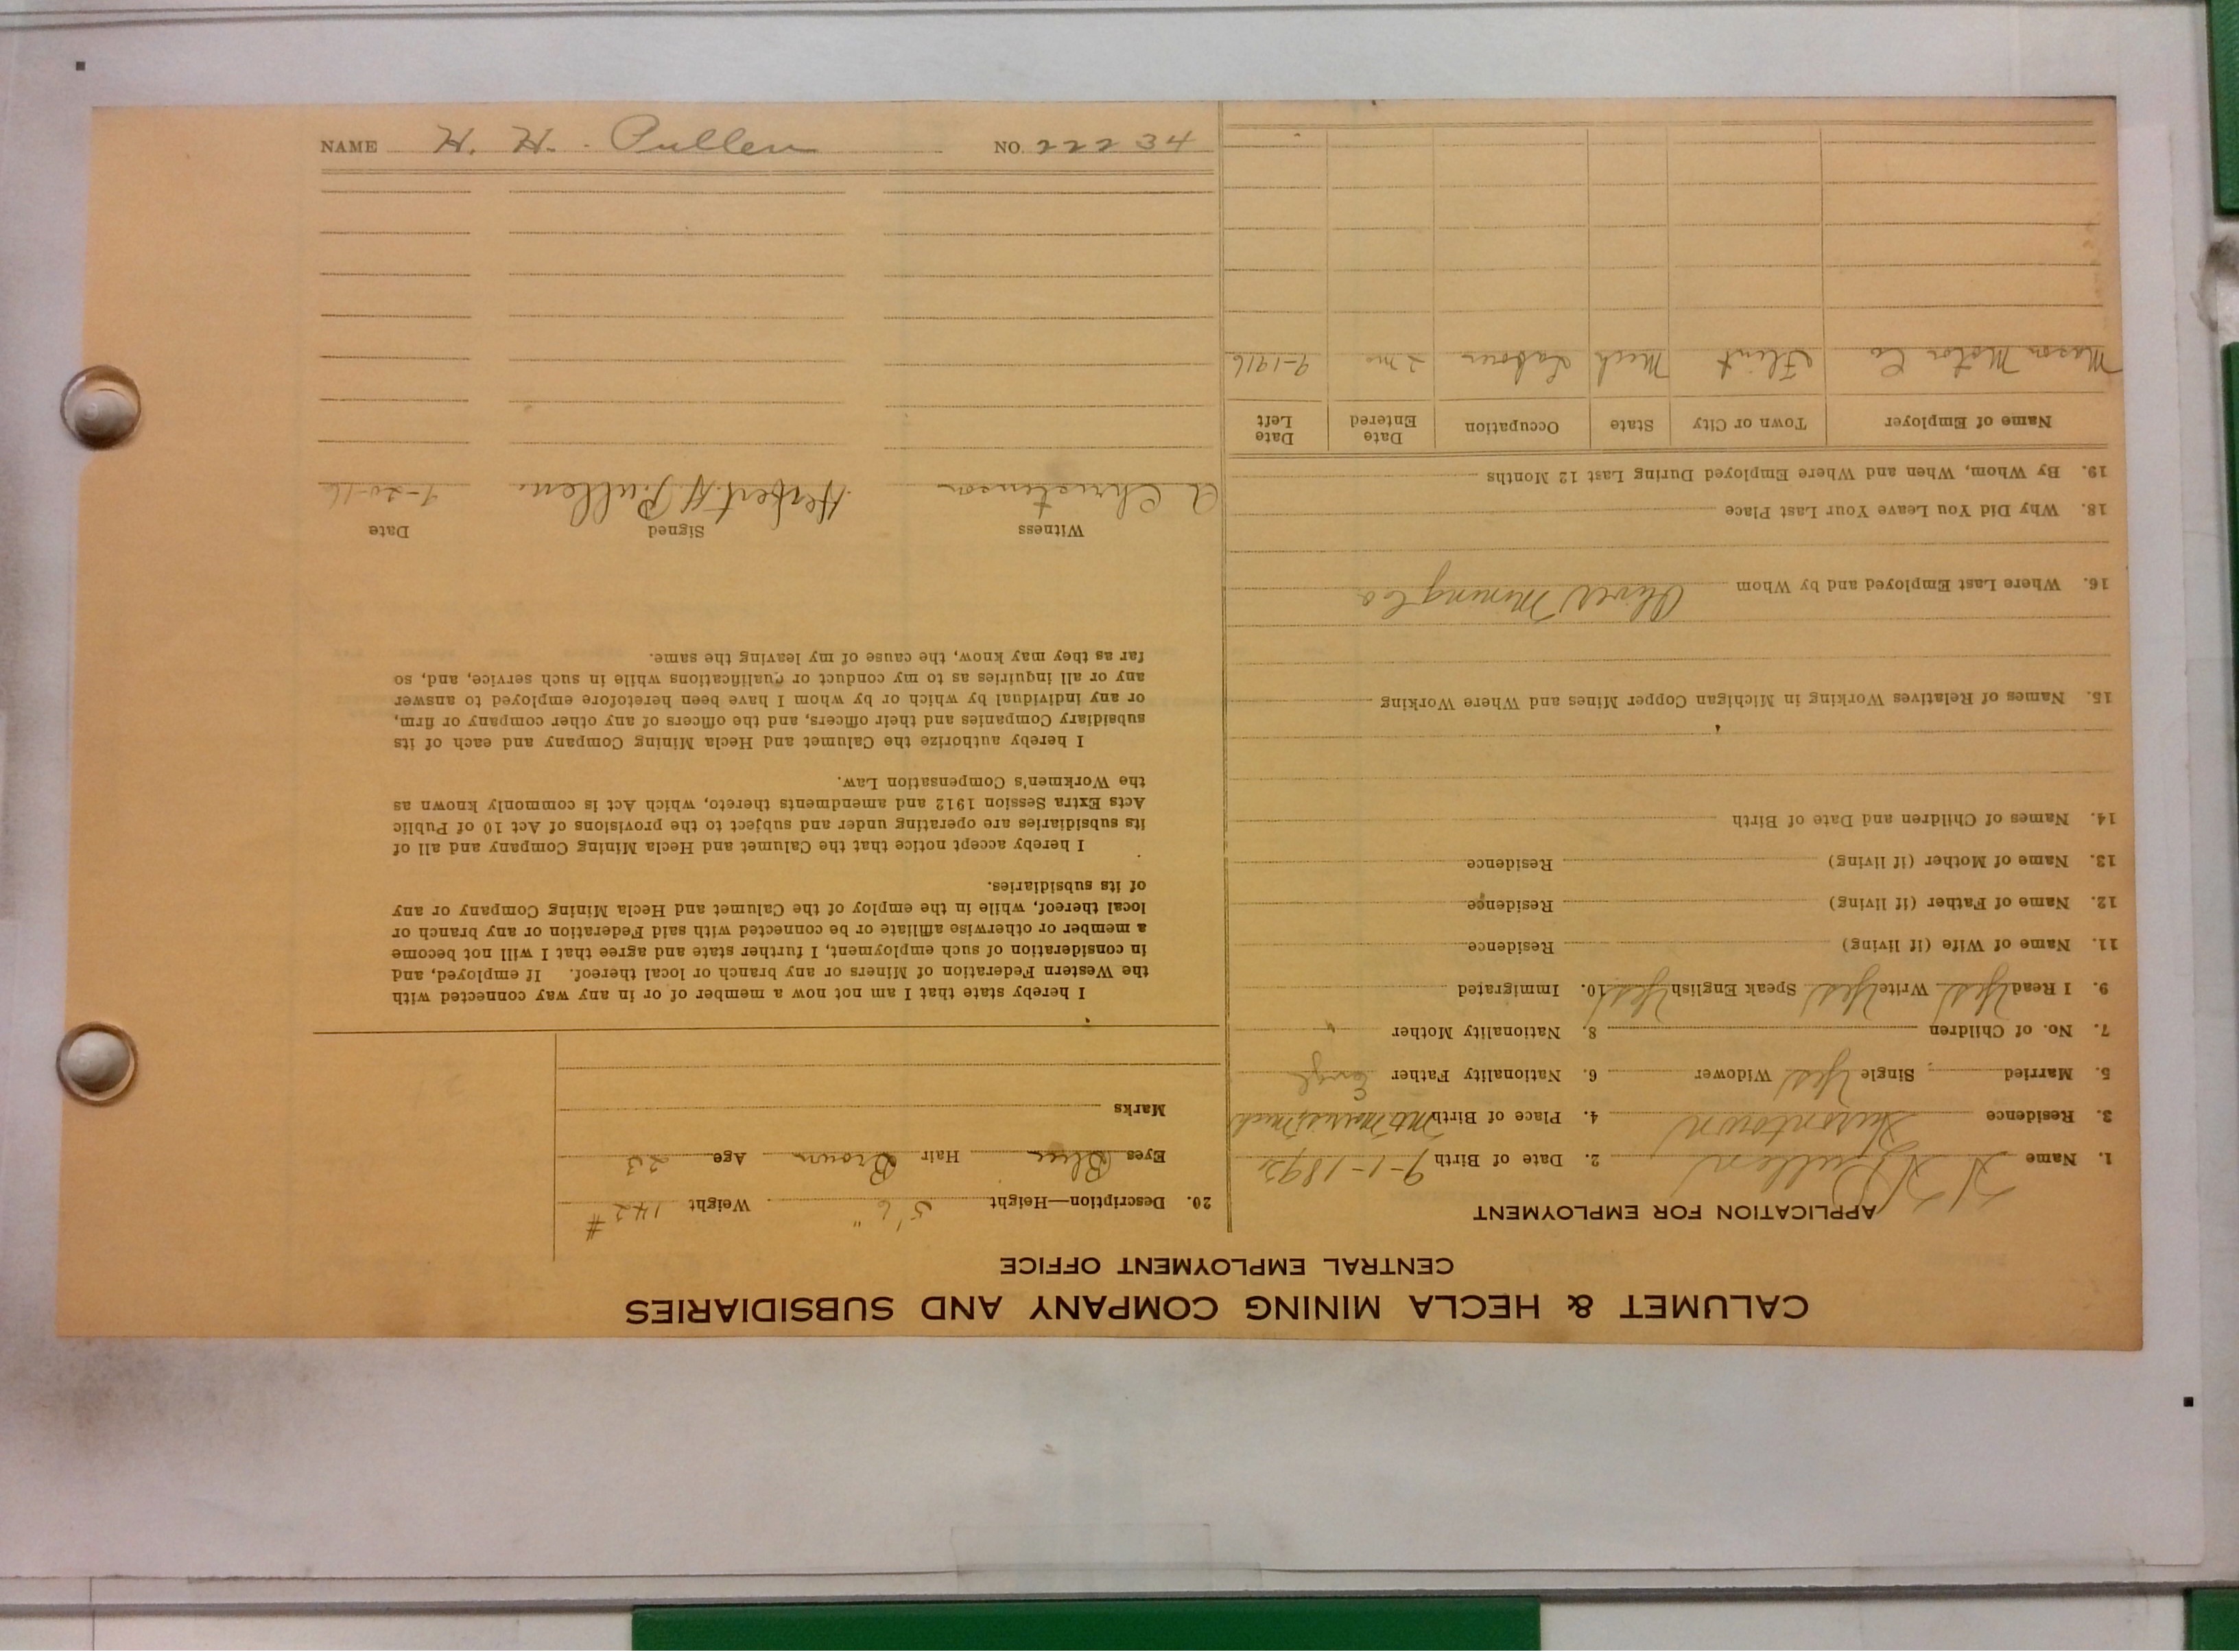 NAME H. H. Pullen NO. 22234
CALUMET & HECLA MINING COMPANY AND SUBSIDIARIES
CENTRAL EMPLOYMENT OFFICE
APPLICATION FOR EMPLOYMENT
1. Name H H Pullen 2. Date of Birth 9-1-1892
3. Residence 4. Place of Birth Mt. Morris Mich
5. Married Single Yes Widower 6. Nationality Father Engl
7. No. of Children 8. Nationality Mother "
9. I Read Yes Write Yes Speak English Yes 10. Immigrated
11. Name of Wife (if living) Residence
12. Name of Father (if living) Residence
13. Name of Mother (if living) Residence
14. Names of Children and Date of Birth
15. Names of Relatives Working in Michigan Copper Mines and Where Working
16. Where Last Employed and by Whom Oliver Mining Co
18. Why Did You Leave Your Last Place
19. By Whom, When and Where Employed During Last 12 Months
Name of Employer Town or City State Occupation Date Entered Date Left
Mason Motor Co Flint Mich Laborer 2 mo 9-1916
20. Description—Height 5' 6" Weight 142 #
Eyes Blue Hair Brown Age 23
Marks
I hereby state that I am not now a member of or in any way connected with
the Western Federation of Miners or any branch or local thereof. If employed, and
in consideration of such employment, I further state and agree that I will not become
a member or otherwise affiliate or be connected with said Federation or any branch or
local thereof, while in the employ of the Calumet and Hecla Mining Company or any
of its subsidiaries.
I hereby accept notice that the Calumet and Hecla Mining Company and all of
its subsidiaries are operating under and subject to the provisions of Act 10 of Public
Acts Extra Session 1912 and amendments thereto, which Act is commonly known as
the Workmen's Compensation Law.
I hereby authorize the Calumet and Hecla Mining Company and each of its
subsidiary Companies and their officers, and the officers of any other company or firm,
or any individual by which or by whom I have been heretofore employed to answer
any or all inquiries as to my conduct or qualifications while in such service, and, so
far as they may know, the cause of my leaving the same.
Witness Signed Date
A Christenson Herbert H. Pullen. 9-20-16